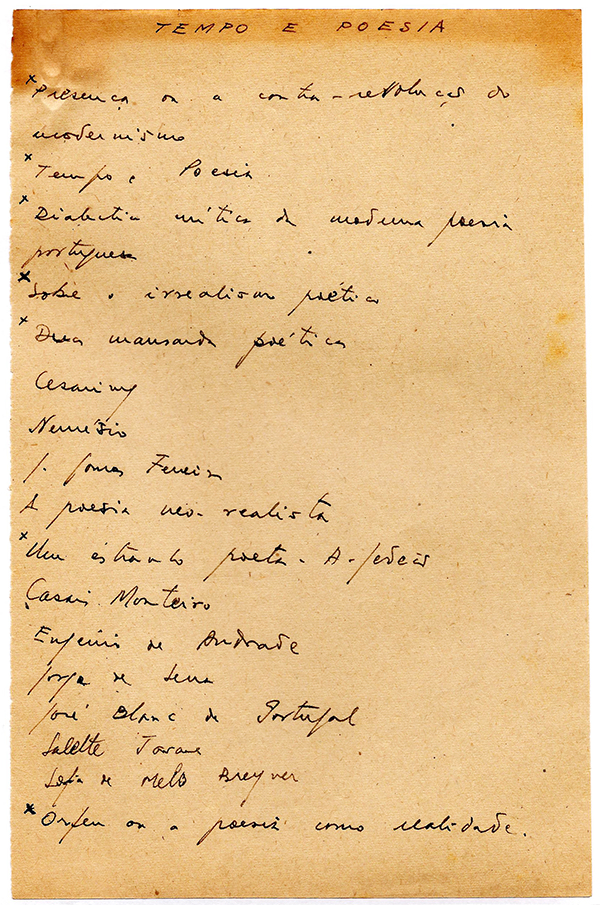 TEMPO E POESIA
× Presença ou a contra-revolução do
modernismo
× Tempo e Poesia
× Dialectica mítica da moderna poesia
portuguesa
× Sobre o irrealismo poético
× Duca mansarda poética
Cesariny
Nemésio
J. Gomes Ferreira
A poesia neo-realista
× Um estranho poeta - A. Gedeão
Casais Monteiro
Eugénio de Andrade
Jorge de Sena
José Blanc de Portugal
Salette Tavares
Sofia de Melo Breyner
× Orfeu ou a poesia como realidade.